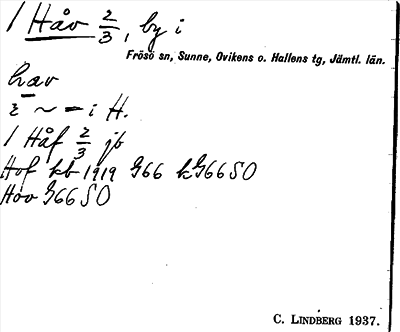 / Håv 2/3, by i
Frösö sn, Sunne, Ovikens o. Hallens tg, Jämtl. län.
hav
i ~ - i H.
/ Håf 2/3 jb
Hof kb 1919 G66 kG66SO
Hov G66 SO
C. LINDBERG 1937.